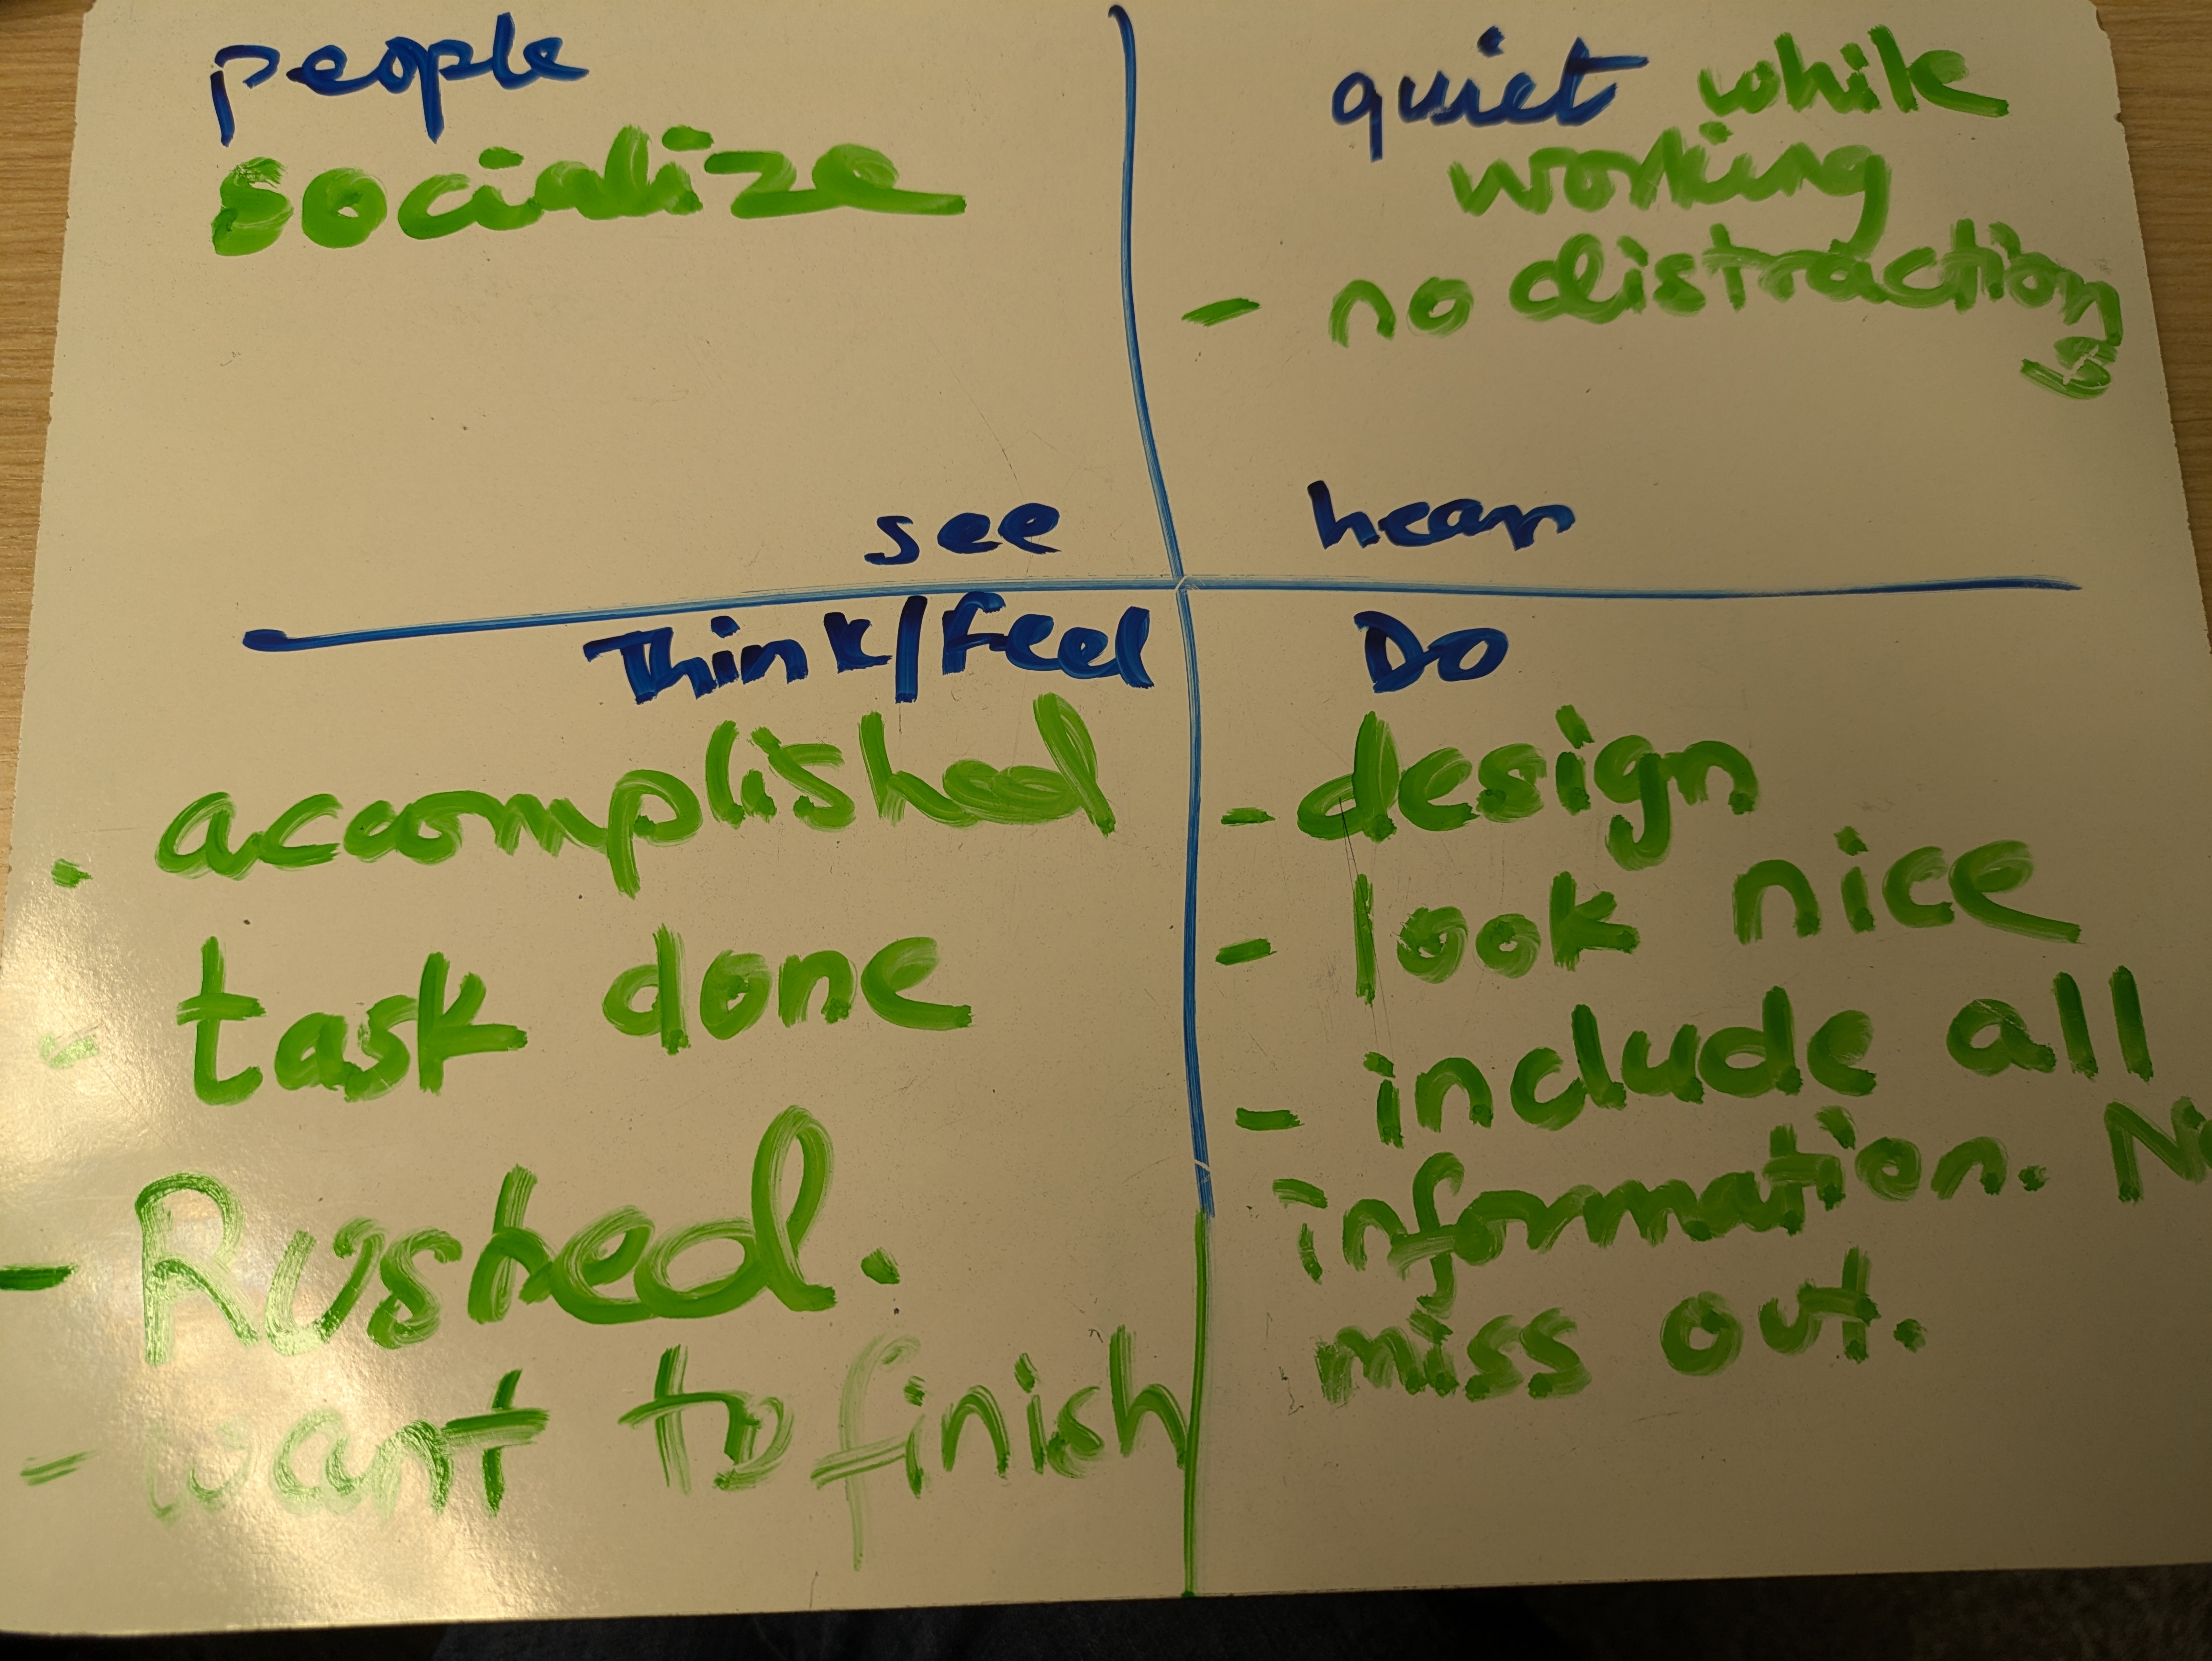 people
socialize
see
quiet while
working
- no distraction
s
hear
Think/feel
- accomplished
- task done
- Rushed.
- want to finish
Do
- design
- look nice
- include all
information. No
miss out.